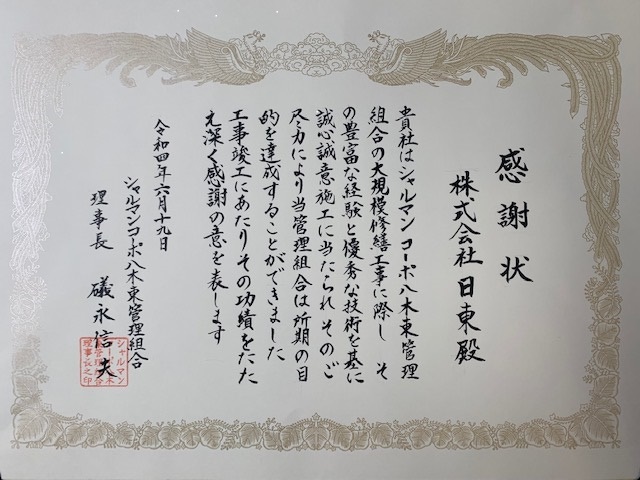 感謝状
株式会社日東殿
貴社はシャルマンコーポ八木東管理
組合の大規模修繕工事に際し そ
の豊富な経験と優秀な技術を基に
誠心誠意施工に当たられ そのご
尽力により当管理組合は所期の目
的を達成することができました
工事竣工にあたりその功績をたた
え深く感謝の意を表します
令和四年六月十九日
シャルマンコーポ八木東管理組合
理事長 礒永信夫
シャルマン
コーポ八木
東管理組合
理事長之印